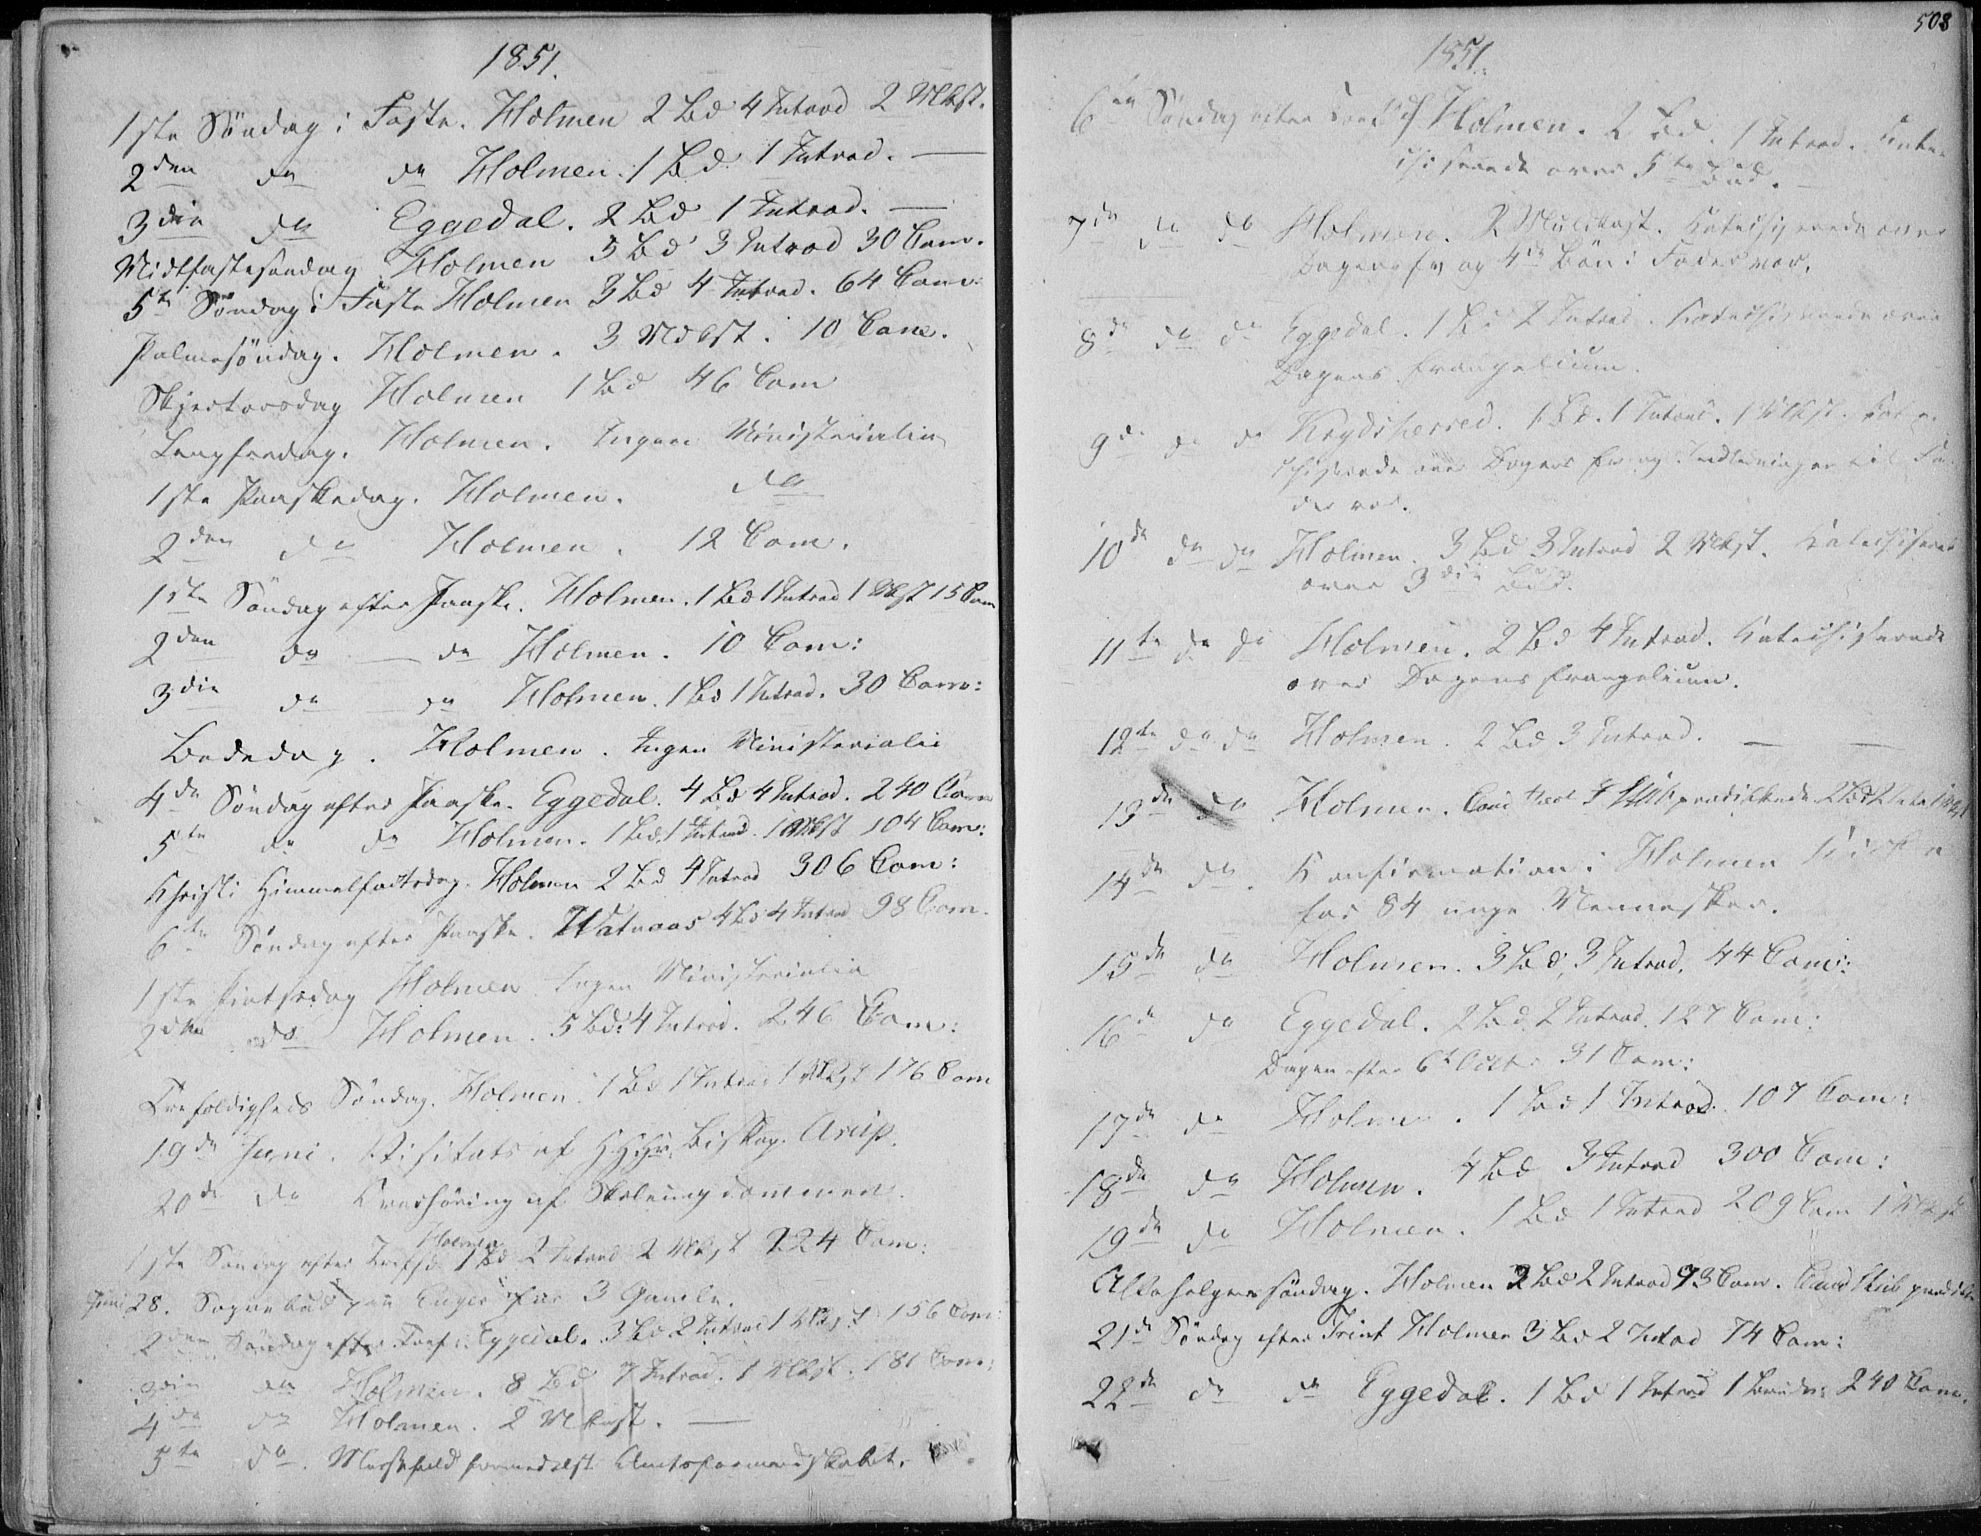 1851.
1ste Söndag i Faste. Holmen 2 Bd 4 Introd 2 Mkst.
2den do do Holmen. 1 Bd. 1 Introd. —
3die do Eggedal. 2 Bd 1 Introd. —
Midtfastesöndag Holmen 5 Bd 3 Introd 30 Com.
5te Söndag i Faste Holmen 3 Bd 4 Introd. 64 Com.
Palmesöndag. Holmen. 3 Mdkst. 10 Com.
Skjertorsdag Holmen 1 Bd 46 Com
Langfredag. Holmen. Ingen Ministerialia
1ste Paaskedag. Holmen. do
2den do Holmen. 12 Com.
1ste Söndag efter Paaske. Holmen. 1 Bd 1 Introd 1 Mkst 15 Com
2den do — do Holmen. 10 Com:
3die do — do Holmen. 1 Bd 1 Introd. 30 Com:
Bededag. Holmen. Ingen Ministerialia
4de Söndag efter Paaske. Eggedal. 4 Bd 4 Introd. 240 Com
5te do do Holmen. 1 Bd. 1 Introd. 1 Mkst 104 Com:
Christi Himmelfartsdag. Holmen 2 Bd 4 Introd 306 Com:
6te Söndag efter Paaske. Watnaas 4 Bd 4 Introd 98 Com.
1ste Pintsedag Holmen Ingen Ministerialia
2den do Holmen. 5 Bd: 4 Introd. 246 Com:
Trefoldigheds Söndag. Holmen. 1 Bd 1 Introd 1 Mkst 176 Com
19de Juni. Visitats af Biskop Arup.
20de do Overhöring af Skoleungdommen.
1ste Söndag efter Trefd. Holmen 1 Bd 2 Introd 2 Mkst 224 Com:
Juni 28. Sognebud paa Enger for 3 Gamle.
2den Söndag efter Tref: Eggedal. 3 Bd 2 Introd 1 Mkst 156 Com:
3die do Holmen. 8 Bd 7 Introd. 1 Mkst. 181 Com:
4de do Holmen. 2 Mkast. —
5te do. Messefald formedelst Amtsformandskabet.
508
1851.
6te Söndag efter Tref: Holmen. 2 Bd. 1 Introd. Kate-
chiserede over 5te Bud. —
7de do do Holmen. 2 Muldkast. Katechiserede over
Dagens Ev og 4de Bön i Fadervor.
8de do do Eggedal. 1 Bd 2 Introd. Katechiserede over
Dagens Evangelium.
9de do do Krydsherred. 1 Bd. 1 Introd. 1 Mkst. Kate-
chiserede over Dagens Ev og Indledningen til Fa-
dervor.
10de do do Holmen. 3 Bd 3 Introd 2 Mkst. Katechiserede
over 3die Bud.
11te do do Holmen. 2 Bd 4 Introd. Katechiserede
over Dagens Evangelium.
12te do do Holmen. 2 Bd 3 Introd. — —
13de do Holmen. Cand prædikede 2 Bd 2 Introd
14de do. Konfirmation i Holmen Kirke
for 84 unge Mennesker.
15de do Holmen. 3 Bd. 3 Introd. 44 Com:
16de do Eggedal. 2 Bd. 2 Introd. 127 Com:
Dagen efter 6te Octbr 31 Com:
17de do Holmen. 1 Bd 1 Introd. 107 Com:
18de do Holmen. 4 Bd 3 Introd 300 Com:
19de do Holmen. 1 Bd 1 Introd 209 Com 1 Mkst
Allehelgenssöndag. Holmen 2 Bd 2 Introd 93 Com. Cand
21de Söndag efter Trint Holmen 3 Bd 2 Introd 74 Com:
22de do do Eggedal. 1 Bd 1 Introd 1 Brudv: 240 Com.